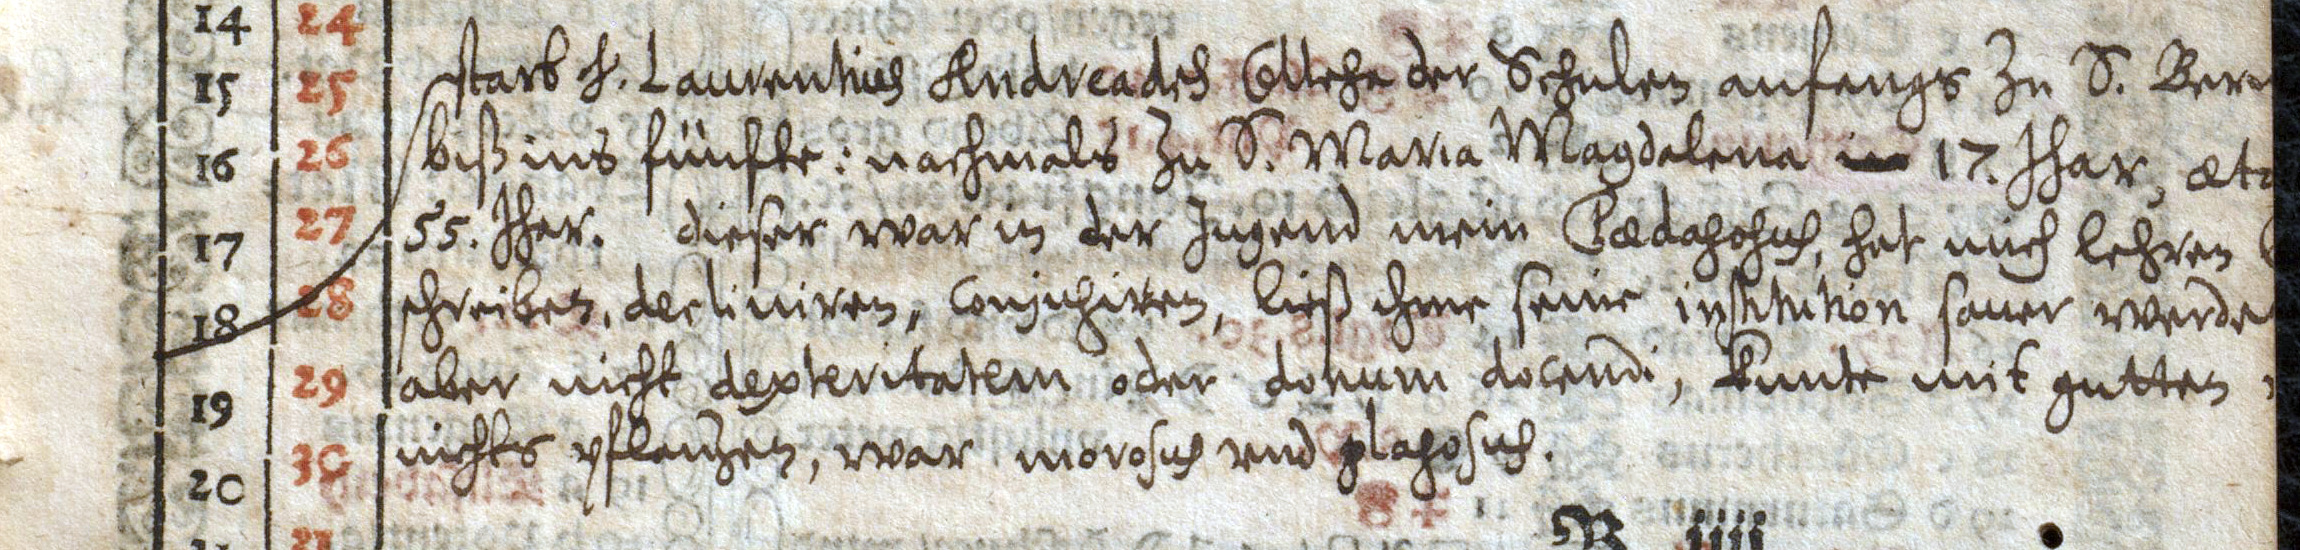 14 24
15 25 starb H. Laurentius Andreades Collega der Schulen anfangs zu S. Bern
16 26 biß ins fünfte: nachmals zu S. Maria Magdalena 17. Jhar, æta
17 27 55. Jhar. dieser war in der Jugend mein Pædagogus, hat mich lehren
18 28 schreiben, decliniren, conjugiren, ließ ihme seine institution sauer werde
19 29 aber nicht dexteritatem oder donum docendi, kunte mit gutten
20 30 nichts pflantzen, war morosus und plagosus.
21 31
B iiij